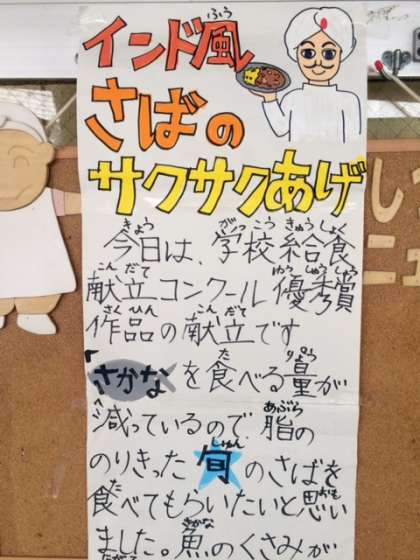 インド風
さばの
サクサクあげ
今日は、学校給食
献立コンクール優秀賞
作品の献立です
「さかなを食べる量が
減っているので、脂の
のりきった旬のさばを
食べてもらいたいと思い
ました。魚のくさみが